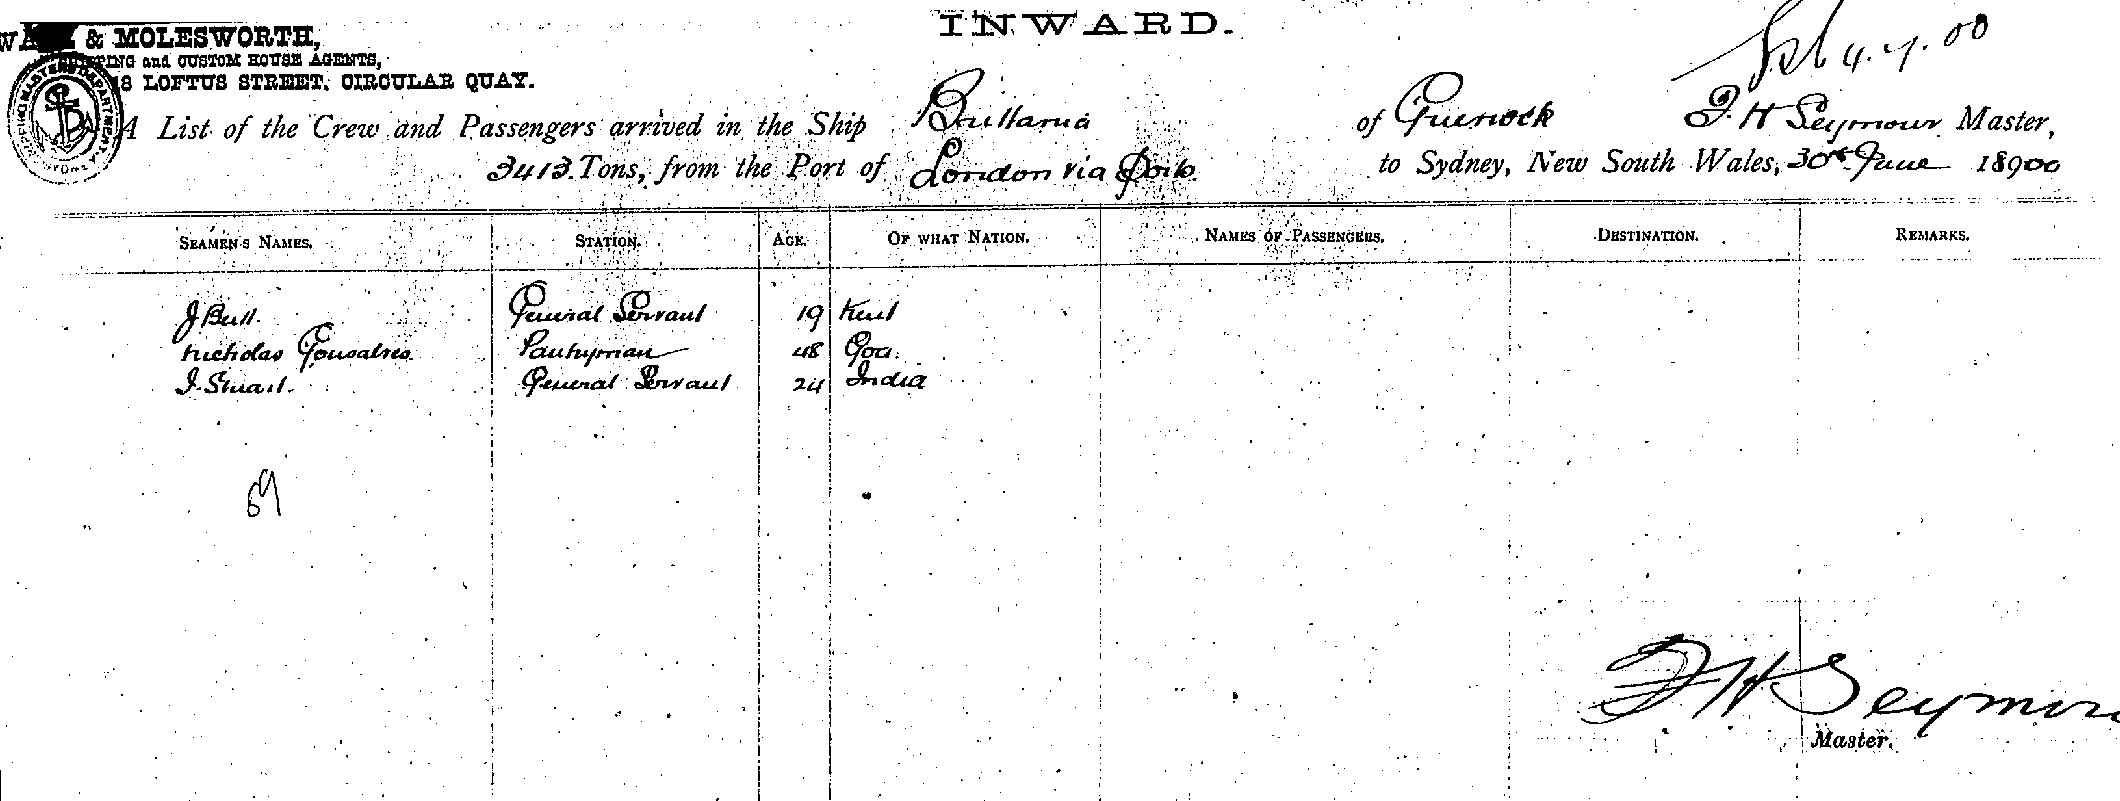 INWARD.
& MOLESWORTH,
SHIPPING and CUSTOM HOUSE AGENTS,
18 LOFTUS STREET, CIRCULAR QUAY.
4.7.00
A List of the Crew and Passengers arrived in the Ship Brittania of Greenock F. H Seymour Master,
3413 Tons, from the Port of London via Ports to Sydney, New South Wales, 30th June 18900
SEAMEN'S NAMES. STATION. AGE. OF WHAT NATION. NAMES OF PASSENGERS. DESTINATION. REMARKS.
J Bull General Servant 19 Kent
Nicholas Gonsalves Pantryman 48 Goa
J. Stuart General Servant 24 India
69
F H Seymour
Master.